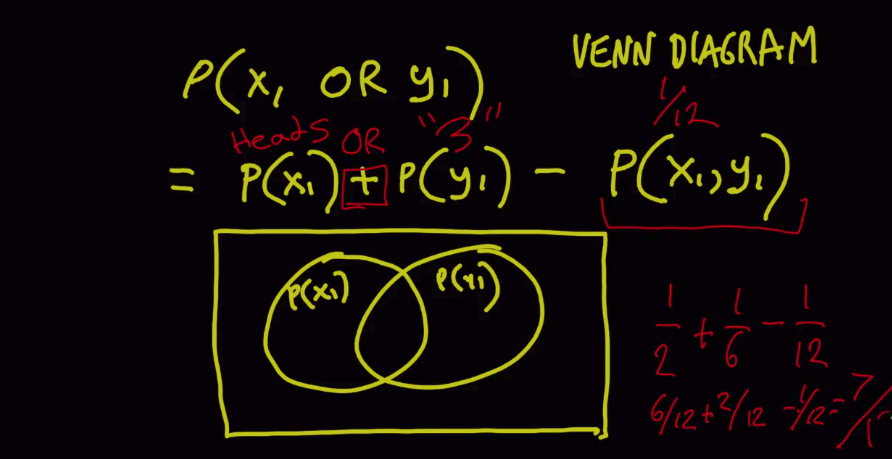 VENN DIAGRAM
P(x₁ OR y₁)
1/12
Heads OR "3"
= P(x₁) + P(y₁) - P(x₁, y₁)
P(x₁) P(y₁)
1/2 + 1/6 - 1/12
6/12 + 2/12 - 1/12 = 7/1